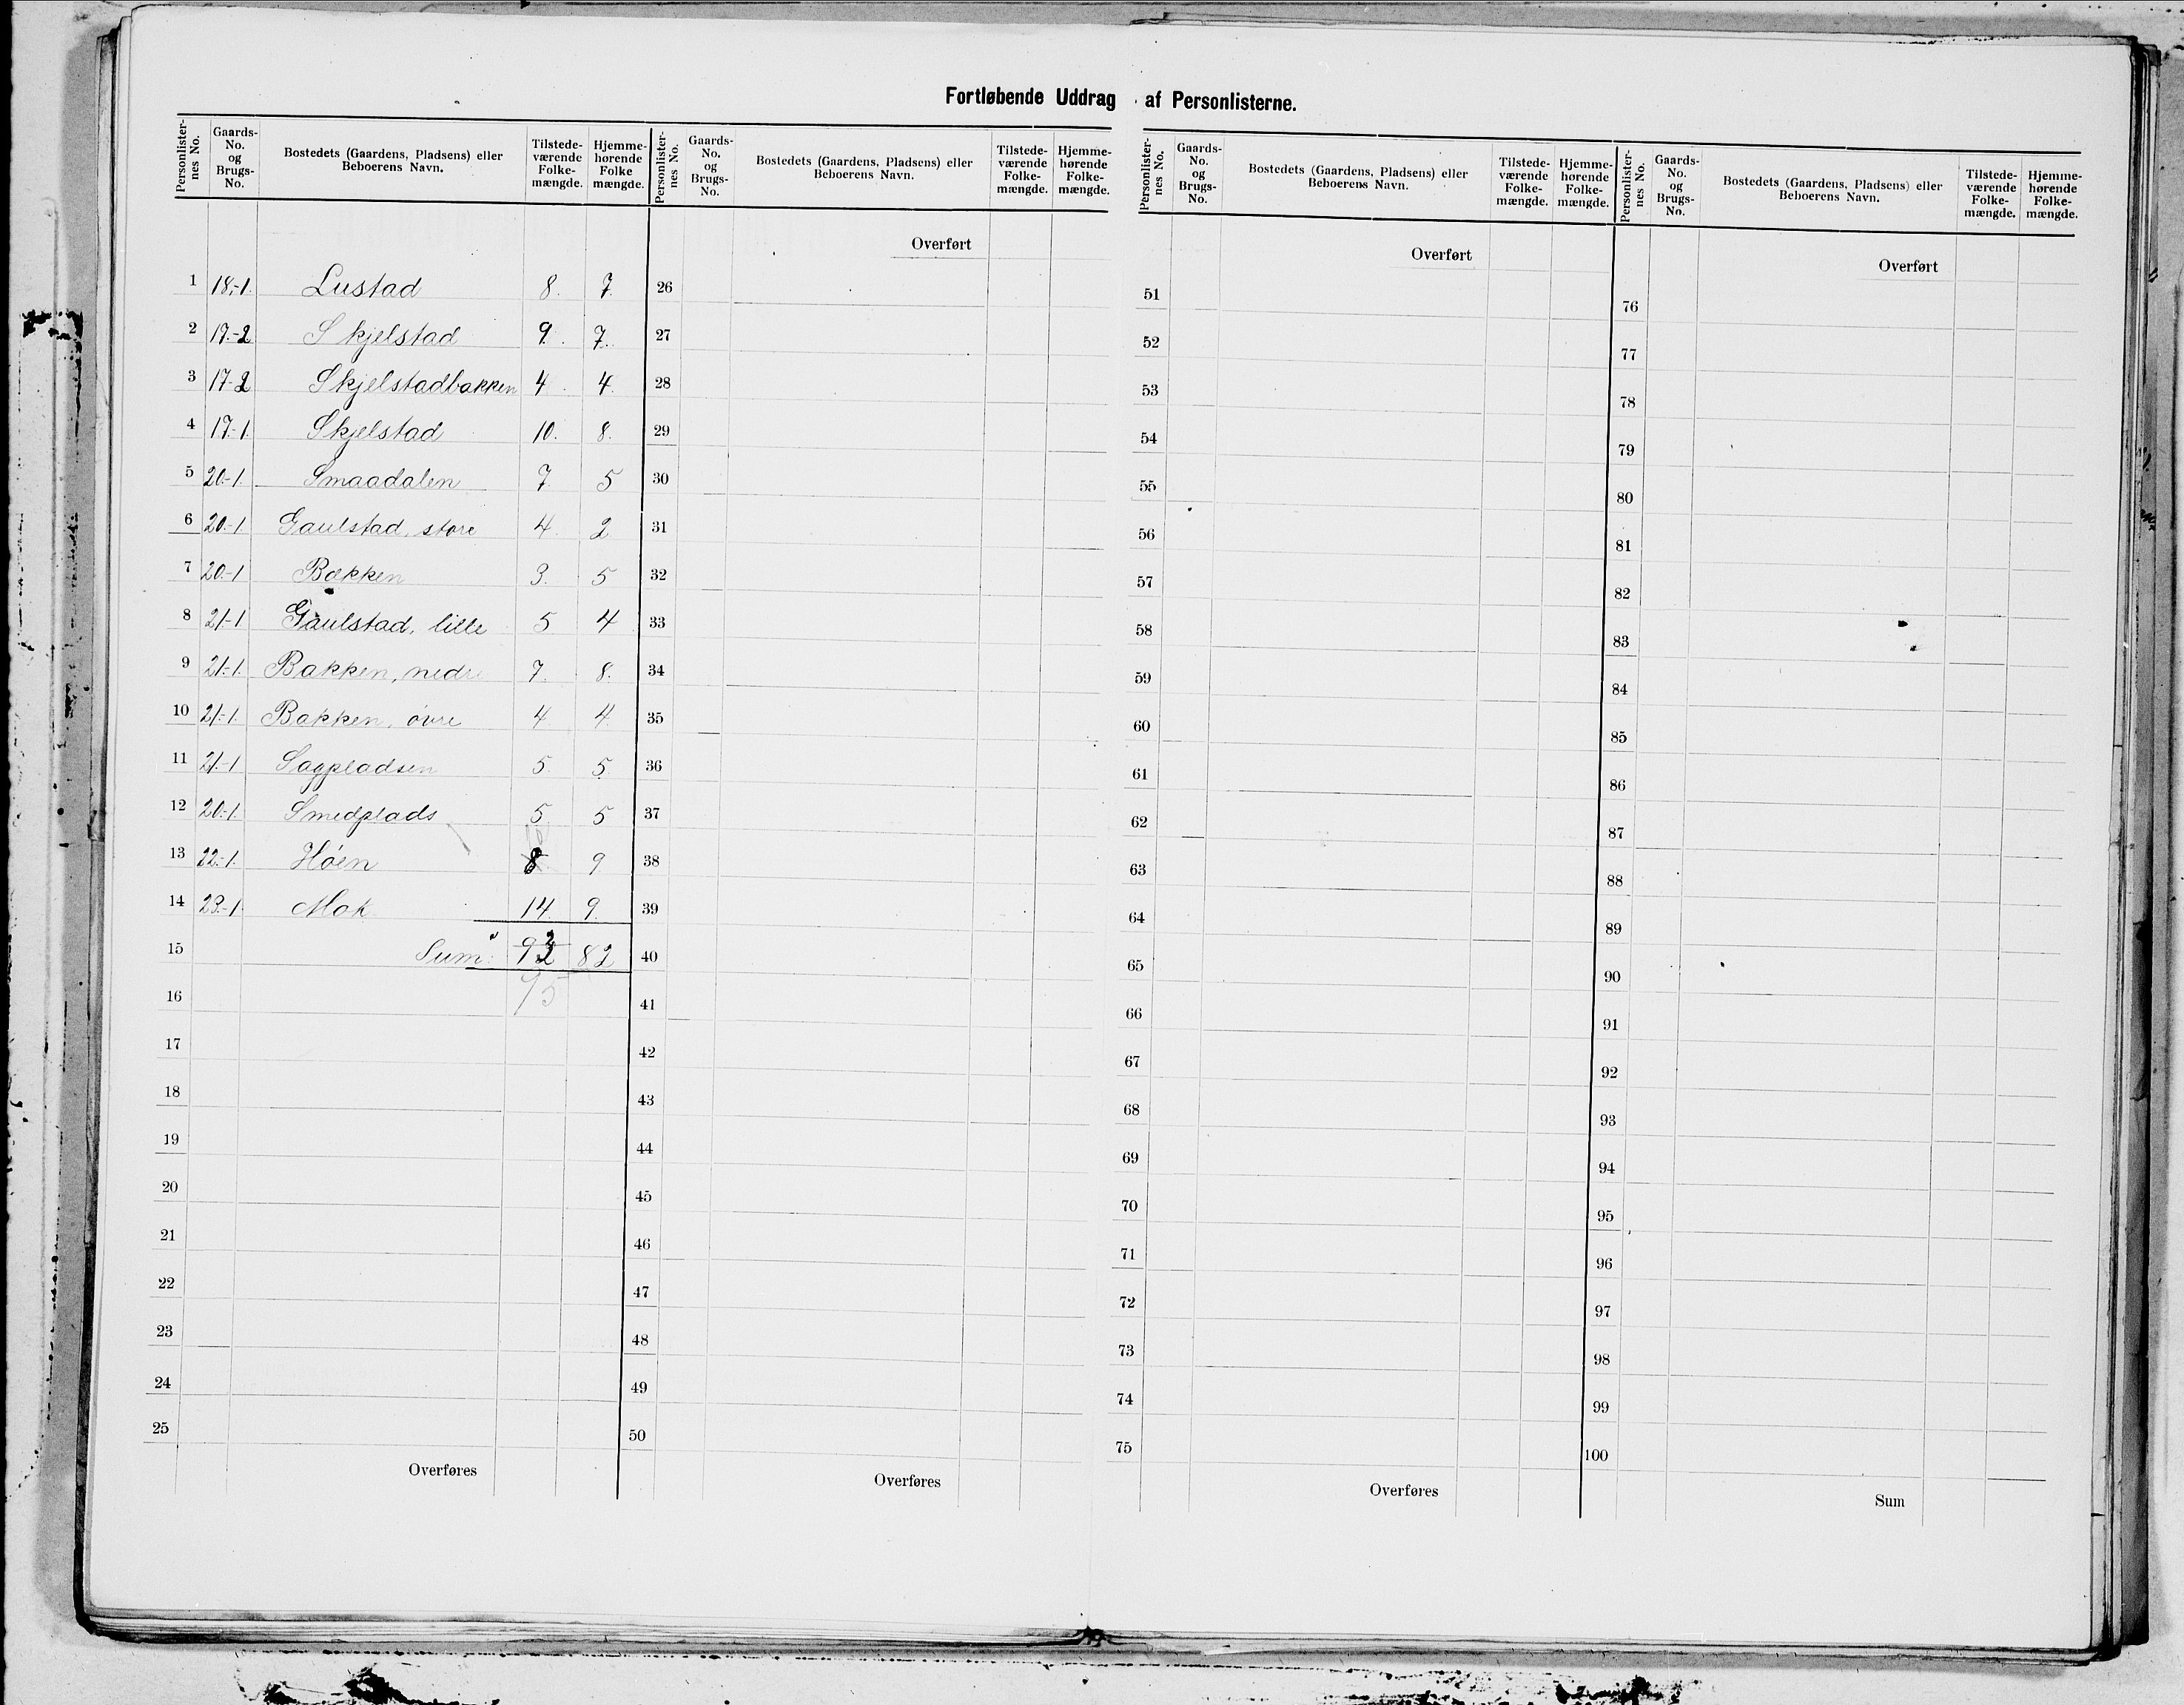 Fortløbende Uddrag af Personlisterne.
Personlister-nes No. | Gaards-No. og Brugs-No. | Bostedets (Gaardens, Pladsens) eller Beboerens Navn. | Tilstede-værende Folke-mængde. | Hjemme-hørende Folke mængde.
1 18,-1. Lustad 8. 7.
2 17.-2 Skjelstad 9. 7.
3 17-2 Skjelstadbakken 4. 4.
4 17.-1. Skjelstad 10. 8.
5 20-1. Smaadalen 7. 5
6 20.-1. Gaulstad, store 4. 2
7 20.-1 Bækken 3. 5
8 21-1 Gaulstad, lille 5 4
9 21.-1. Bakken, nedre 7. 8.
10 21.-1. Bakken, øvre 4 4.
11 21.-1 Sagpladsen 5. 5.
12 20.-1. Smedplads 5 5
13 22.-1. Høen 8. 9
14 23.-1. Mok 14. 9.
15 Sum: 92 82
16 95
17
18
19
20
21
22
23
24
25
Overføres
Personlister-nes No. | Gaards-No. og Brugs-No. | Bostedets (Gaardens, Pladsens) eller Beboerens Navn. | Tilstede-værende Folke-mængde. | Hjemme-hørende Folke-mængde.
Overført
26
27
28
29
30
31
32
33
34
35
36
37
38
39
40
41
42
43
44
45
46
47
48
49
50
Overføres
Personlister-nes No. | Gaards-No. og Brugs-No. | Bostedets (Gaardens, Pladsens) eller Beboerens Navn. | Tilstede-værende Folke-mængde. | Hjemme-hørende Folke-mængde.
Overført
51
52
53
54
55
56
57
58
59
60
61
62
63
64
65
66
67
68
69
70
71
72
73
74
75
Overføres
Personlister-nes No. | Gaards-No. og Brugs-No. | Bostedets (Gaardens, Pladsens) eller Beboerens Navn. | Tilstede-værende Folke-mængde. | Hjemme-hørende Folke-mængde.
Overført
76
77
78
79
80
81
82
83
84
85
86
87
88
89
90
91
92
93
94
95
96
97
98
99
100
Sum